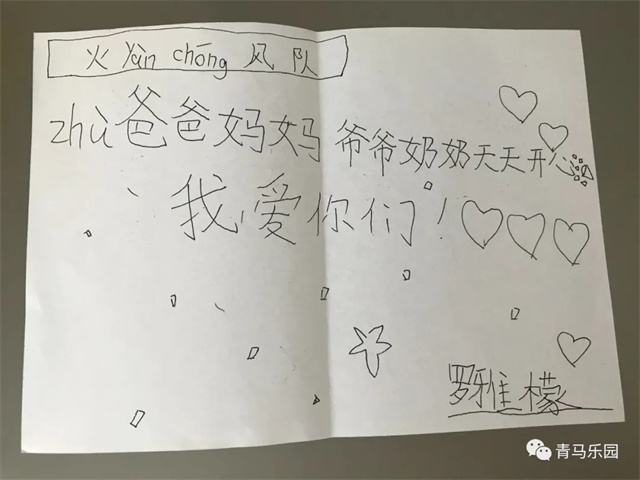 火 Yàn chōng 风 队
zhù爸爸妈妈 爷爷奶奶天天开心
我爱你们!
罗雅檬
青马乐园